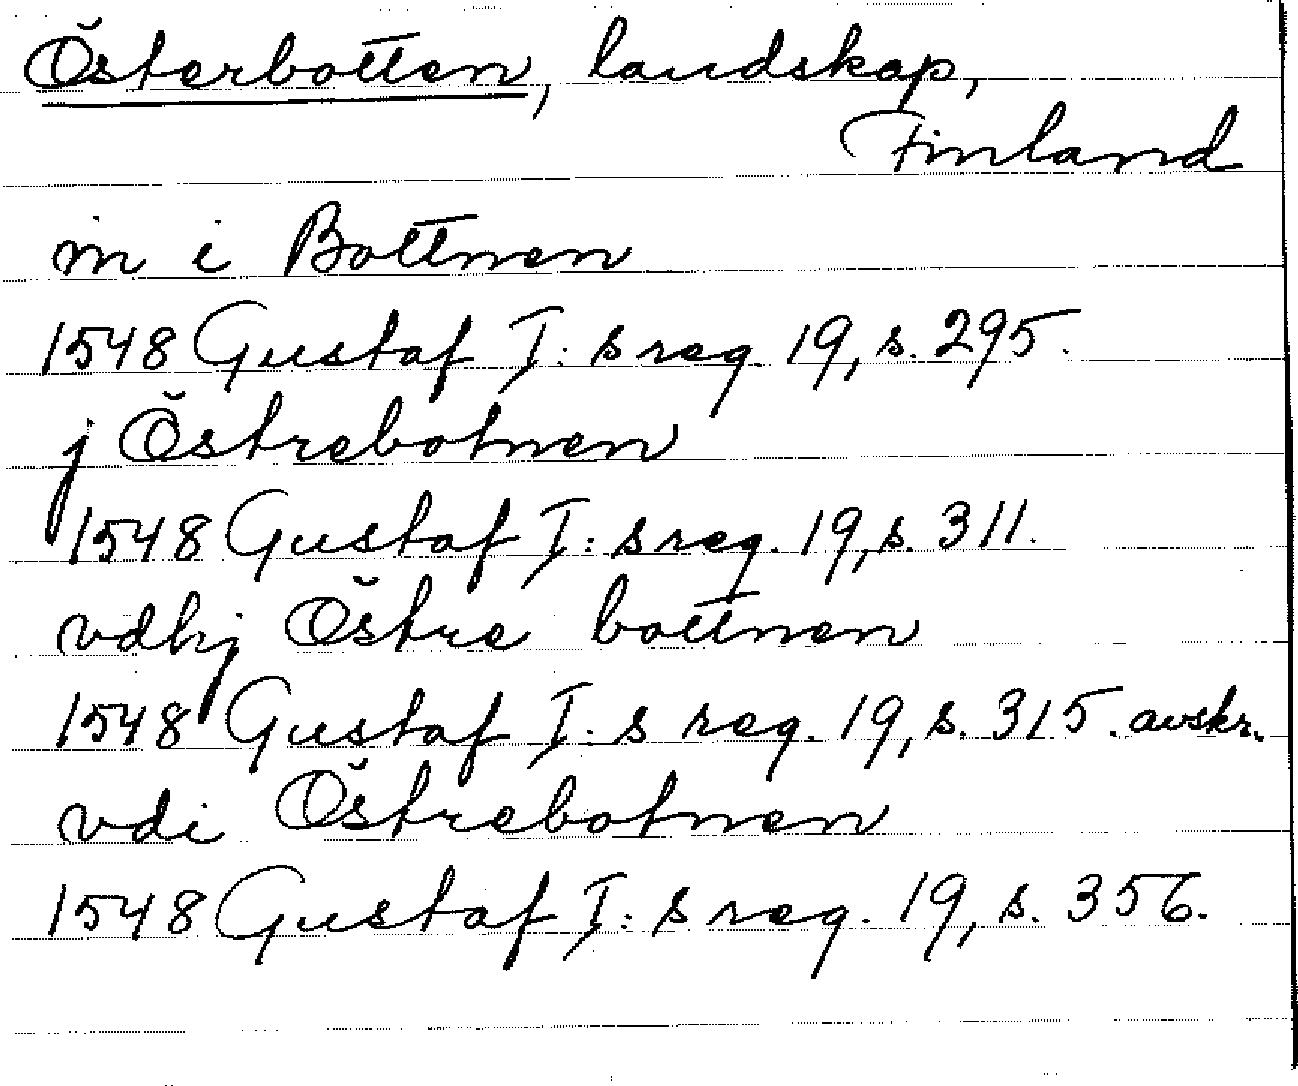 Österbotten, landskap,
Finland
in i Bottnen
1548 Gustaf I:s reg. 19, s. 295.
j Östrebotnen
1548 Gustaf I:s reg. 19, s. 311.
vdhj Östre bottnen
1548 Gustaf I:s reg. 19, s. 315. avskr.
vdi Östrebotnen
1548 Gustaf I:s reg. 19, s. 356.